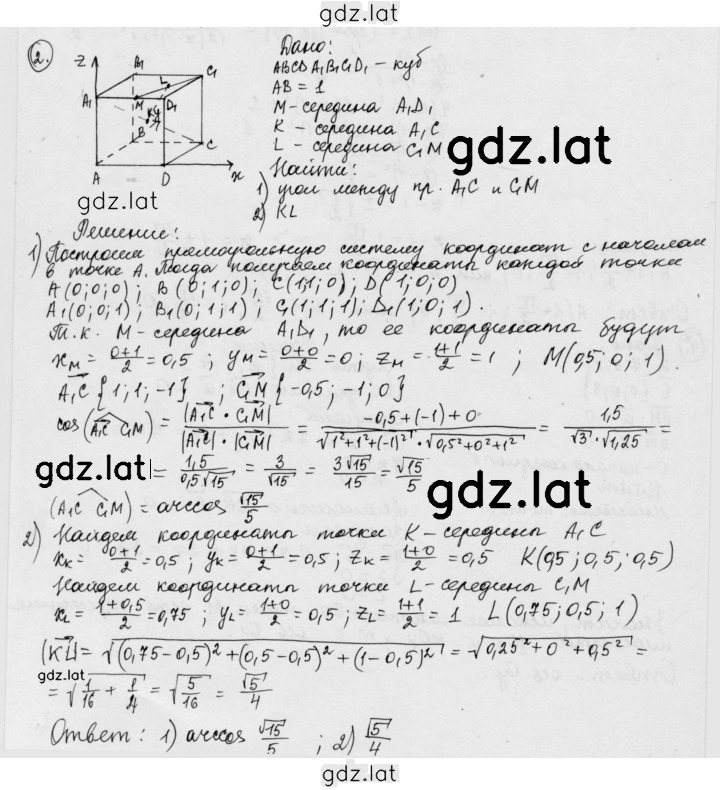 gdz.lat
2.
Z B₁ C₁
A₁ M L D₁
K
B C
A D x
Дано:
ABCDA₁B₁C₁D₁ – куб
AB = 1
M – середина A₁D₁
K – середина A₁C
L – середина C₁M
gdz.lat
Найти:
1) угол между пр. A₁C и C₁M
2) KL
gdz.lat
Решение:
1) Построим прямоугольную систему координат с началом
в точке A. Тогда получаем координаты каждой точки
A(0;0;0); B(0;1;0); C(1;1;0); D(1;0;0)
A₁(0;0;1); B₁(0;1;1); C₁(1;1;1); D₁(1;0;1).
Т.к. M-середина A₁D₁, то ее координаты будут
x_M = (0+1)/2 = 0,5; y_M = (0+0)/2 = 0; z_M = (1+1)/2 = 1; M(0,5; 0; 1).
A₁C {1; 1; -1}; C₁M {-0,5; -1; 0}
cos(A₁C C₁M) = |A₁C · C₁M| / |A₁C| · |C₁M| = (-0,5+(-1)+0) / (√(1²+1²+(-1)²) · √(0,5²+0²+1²)) = 1,5 / (√3 · √1,25) =
gdz.lat
= 1,5/(0,5√15) = 3/√15 = 3√15/15 = √15/5
gdz.lat
(A₁C C₁M) = arccos √15/5
2) Найдем координаты точки K-середины A₁C
x_K = (0+1)/2 = 0,5; y_K = (0+1)/2 = 0,5; z_K = (1+0)/2 = 0,5 K(0,5; 0,5; 0,5)
Найдем координаты точки L-середины C₁M
x_L = (1+0,5)/2 = 0,75; y_L = (1+0)/2 = 0,5; z_L = (1+1)/2 = 1 L(0,75; 0,5; 1)
|KL| = √((0,75-0,5)²+(0,5-0,5)²+(1-0,5)²) = √(0,25²+0²+0,5²) =
gdz.lat
= √(1/16 + 1/4) = √(5/16) = √5/4
Ответ: 1) arccos √15/5; 2) √5/4
gdz.lat